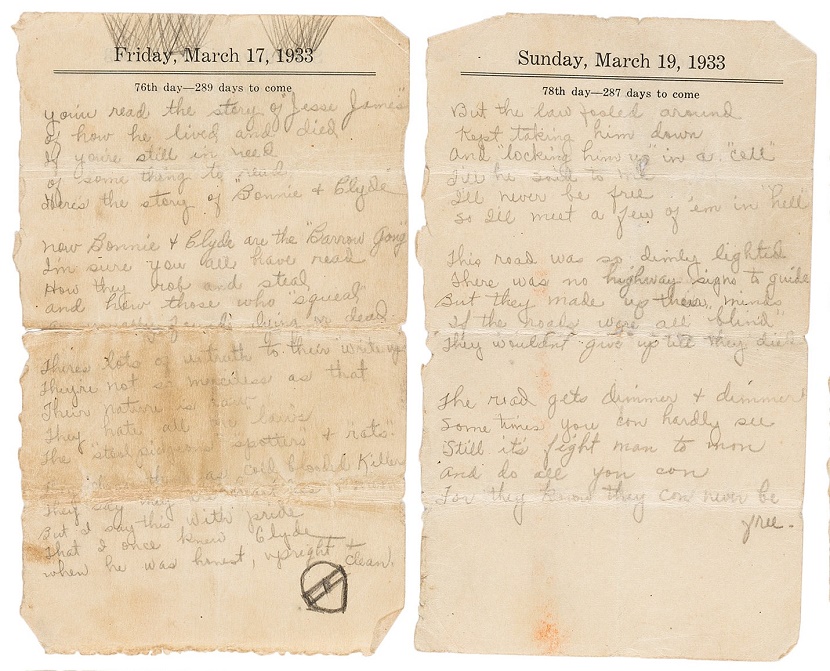 Friday, March 17, 1933
76th day—289 days to come
you've read the story of "Jesse James"
of how he lived and died.
If you're still in need
of some thing to read
Heres the story of "Bonnie & Clyde"
now Bonnie & Clyde are the "Barrow Gang"
I'm sure you all have read
How they rob and steal
and how those who "squeal"
are usually found dying or dead
Theres lots of untruth to their write ups
They're not so merciless as that
Their nature is raw
They hate all the "laws"
The "stool pidgeons" spotters & "rats".
as cold blooded Killer
They say they
But I say this with pride
That I once knew Clyde
when he was honest, upright & clean.
Sunday, March 19, 1933
78th day—287 days to come
But the law fooled around
Kept taking him down
And "locking him up" in a "cell"
Till he said to me
Ill never be free
so Ill meet a few of 'em in "hell"
This road was so dimly lighted
There was no highway signs to guide
But they made up their minds
If the roads were all "blind"
They wouldn't give up till they died
The road gets dimmer & dimmer
Some times you can hardly see
Still it's fight man to man
And do all you can
For they know they can never be
free.